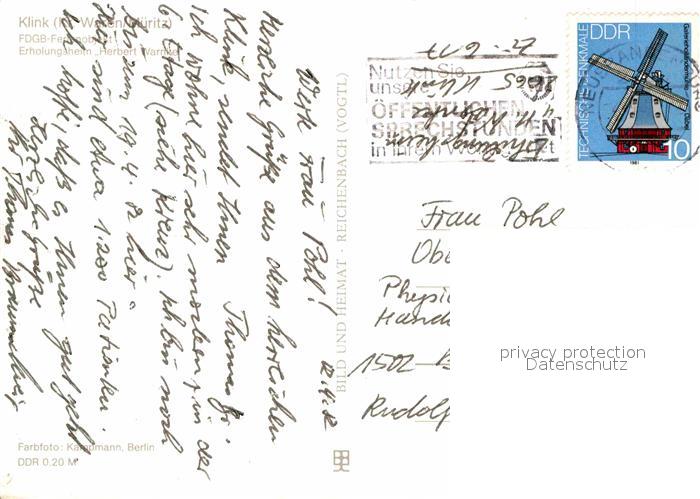 Klink (Kr. Waren/Müritz)
FDGB-Ferienobjekt
Erholungsheim „Herbert Warnke"
Werte Frau Pohl!
12.4.82
Herzliche Grüße aus dem herrlichen
Klink, sendet Ihnen Thomas
Ich wohne hier sehr modern, in der
6. Etage (siehe Kreuz). Ich bin noch
bis zum 19.4.82 hier
sind etwa 1200 Patienten.
Ich hoffe, daß es Ihnen gut geht
herzliche Grüße
Ihr Thomas
Farbfoto: Kampmann, Berlin
DDR 0,20 M
BILD UND HEIMAT · REICHENBACH (VOGTL)
Nutzen Sie
unsere
ÖFFENTLICHEN
SPRECHSTUNDEN
in Ihrem
Erholungsheim
"H. Warnke"
Klink
TECHNISCHE DENKMALE
DDR
1981
10
Frau Pohl
Physi
Hand
1502
Rudolf
privacy protection
Datenschutz